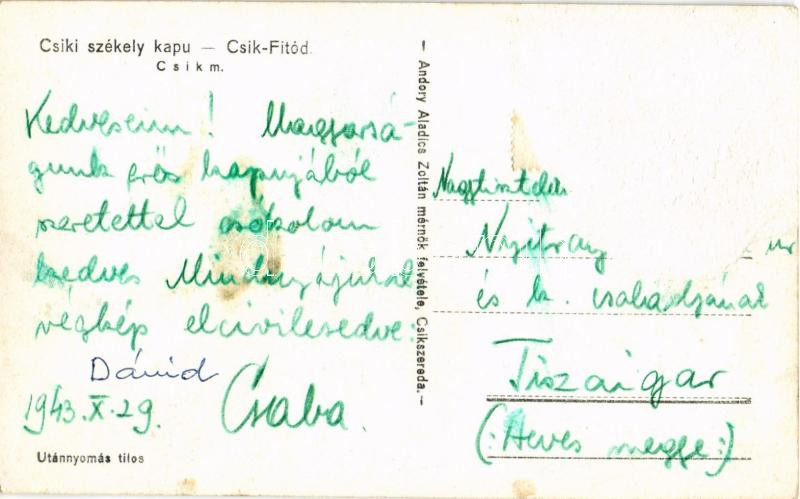 Csiki székely kapu — Csik-Fitód.
Csikm.
Kedveseim! Magyarsá-
gunk erős kapujából
szeretettel csókolom
kedves Mindnyájukat
végkép elcivilesedve:
Dávid
Csaba.
1943.X.29.
Utánnyomás tilos
- Andory Aladics Zoltán mérnök felvétele, Csikszereda. -
Nagytiszteletű
Nyitray ur
és k. családjának
Tiszaigar
(:Heves megye:)